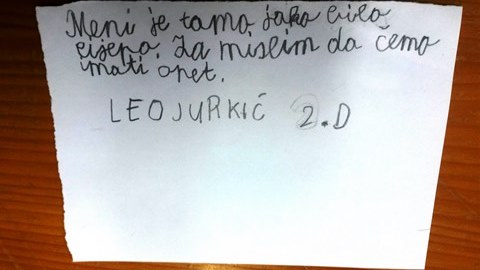 Meni je tamo jako bilo
lijepo. Ja mislim da ćemo
imati opet.
LEO JURKIĆ 2.D